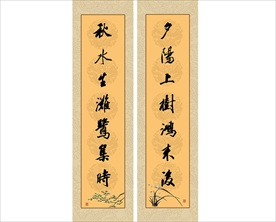 夕陽上樹鴻來後
秋水生灘鷺集時